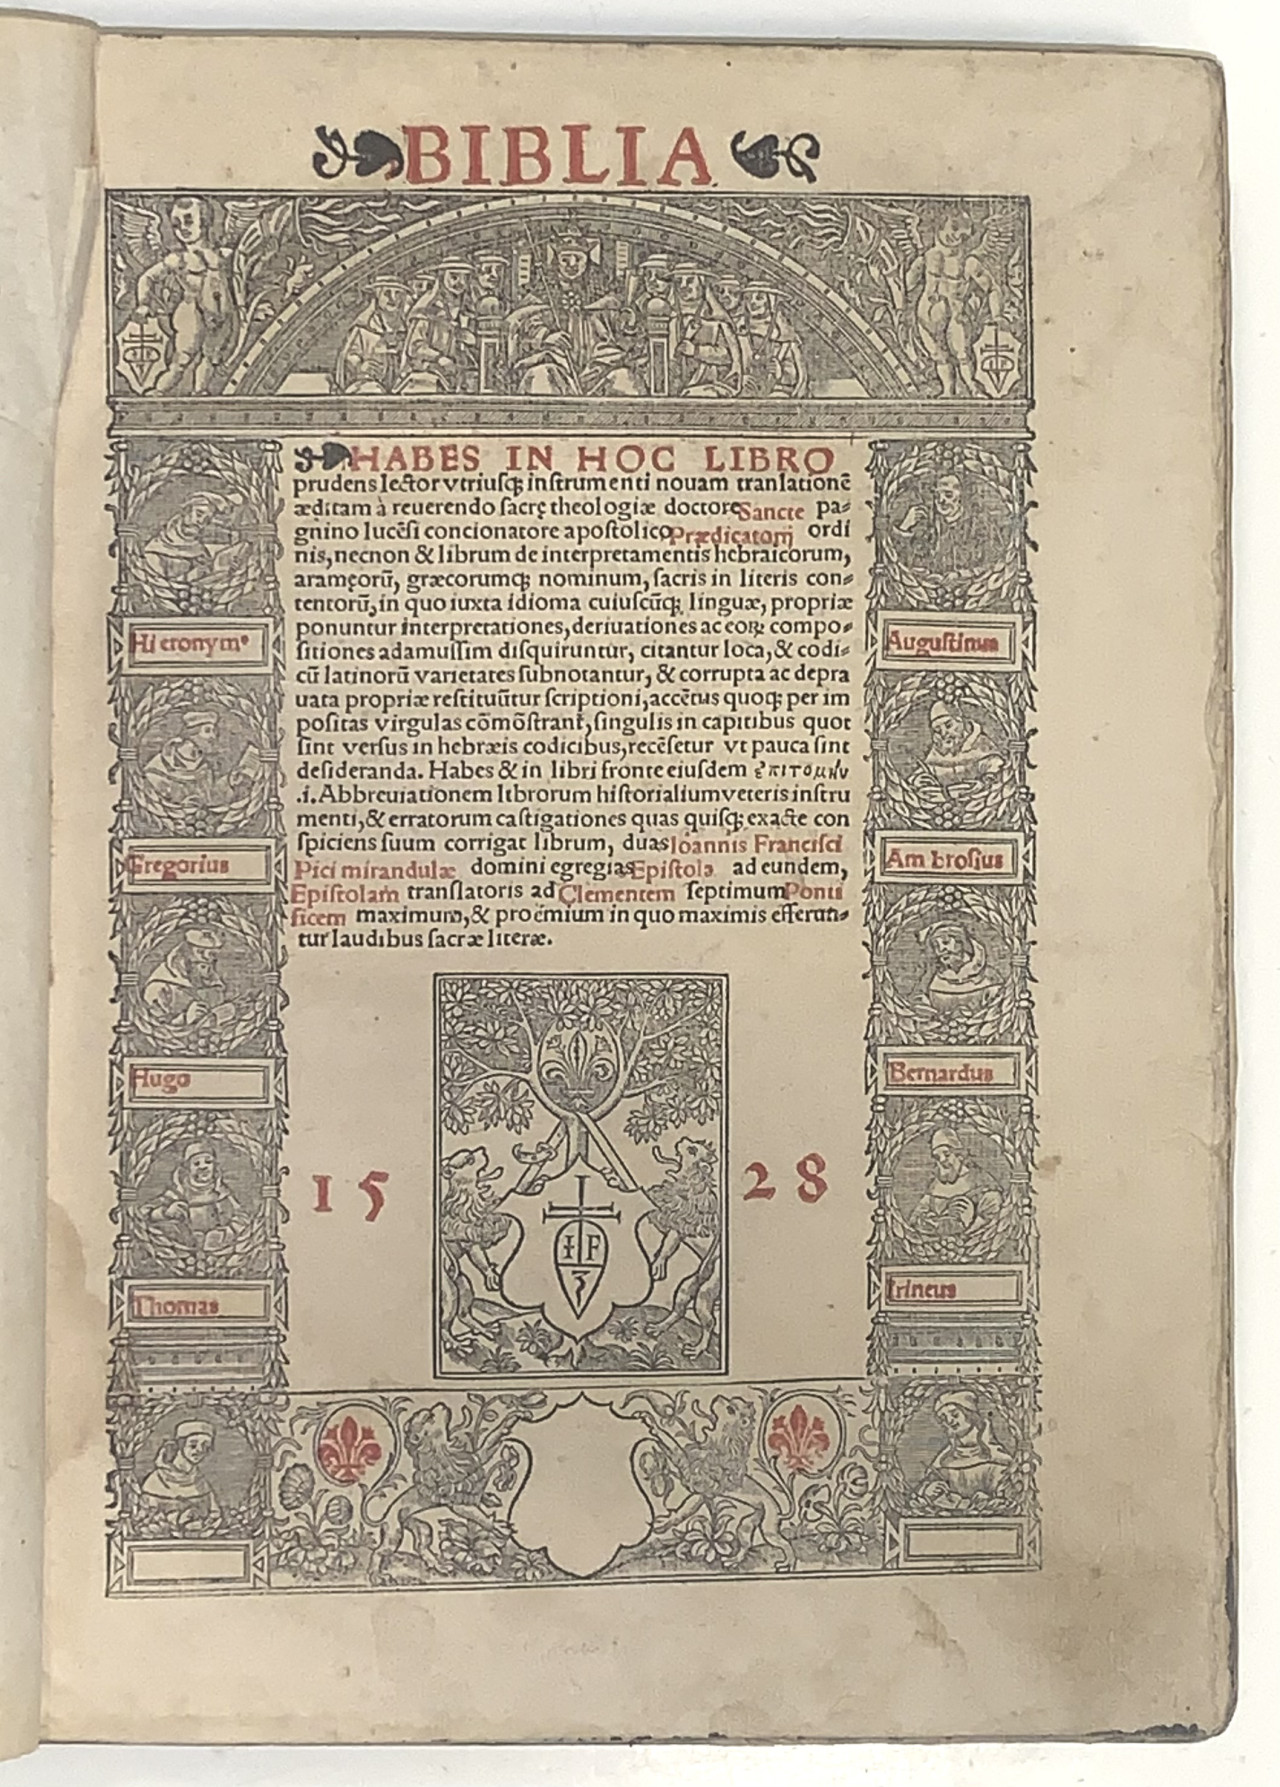 BIBLIA
HABES IN HOC LIBRO
prudens lector vtriusqꝫ instrumenti nouam tranlationē
æditam à reuerendo sacrę theologiæ doctore Sancte pa-
gnino lucēsi concionatore apostolico Prædicatorij ordi
nis, necnon & librum de interpretamentis hebraicorum,
aramęorū, græcorumqꝫ nominum, sacris in literis con-
tentorū, in quo iuxta idioma cuiuscūqꝫ linguæ, propriæ
ponuntur interpretationes, deriuationes ac eoꝝ compo-
sitiones adamussim disquiruntur, citantur loca, & codi-
cū latinorū varietates subnotantur, & corrupta ac depra
uata propriæ restituūtur scriptioni, accētus quoqꝫ per im
positas virgulas cōmōstrant̃, singulis in capitibus quot
sint versus in hebræis codicibus, recēsetur vt pauca sint
desideranda. Habes & in libri fronte eiusdem ἐπιτομὴν
.i. Abbreuiationem librorum historialium veteris instru
menti, & erratorum castigationes quas quisqꝫ exacte con
spiciens suum corrigat librum, duas Ioannis Francisci
Pici mirandulæ domini egregias Epistolas ad eundem,
Epistolam translatoris ad Clementem septimum Ponti
ficem maximum, & proëmium in quo maximis efferun-
tur laudibus sacræ literæ.
Hieronymꝰ
Gregorius
Hugo
Thomas
Augustinus
Ambrosius
Bernardus
Irineus
15 28
I F